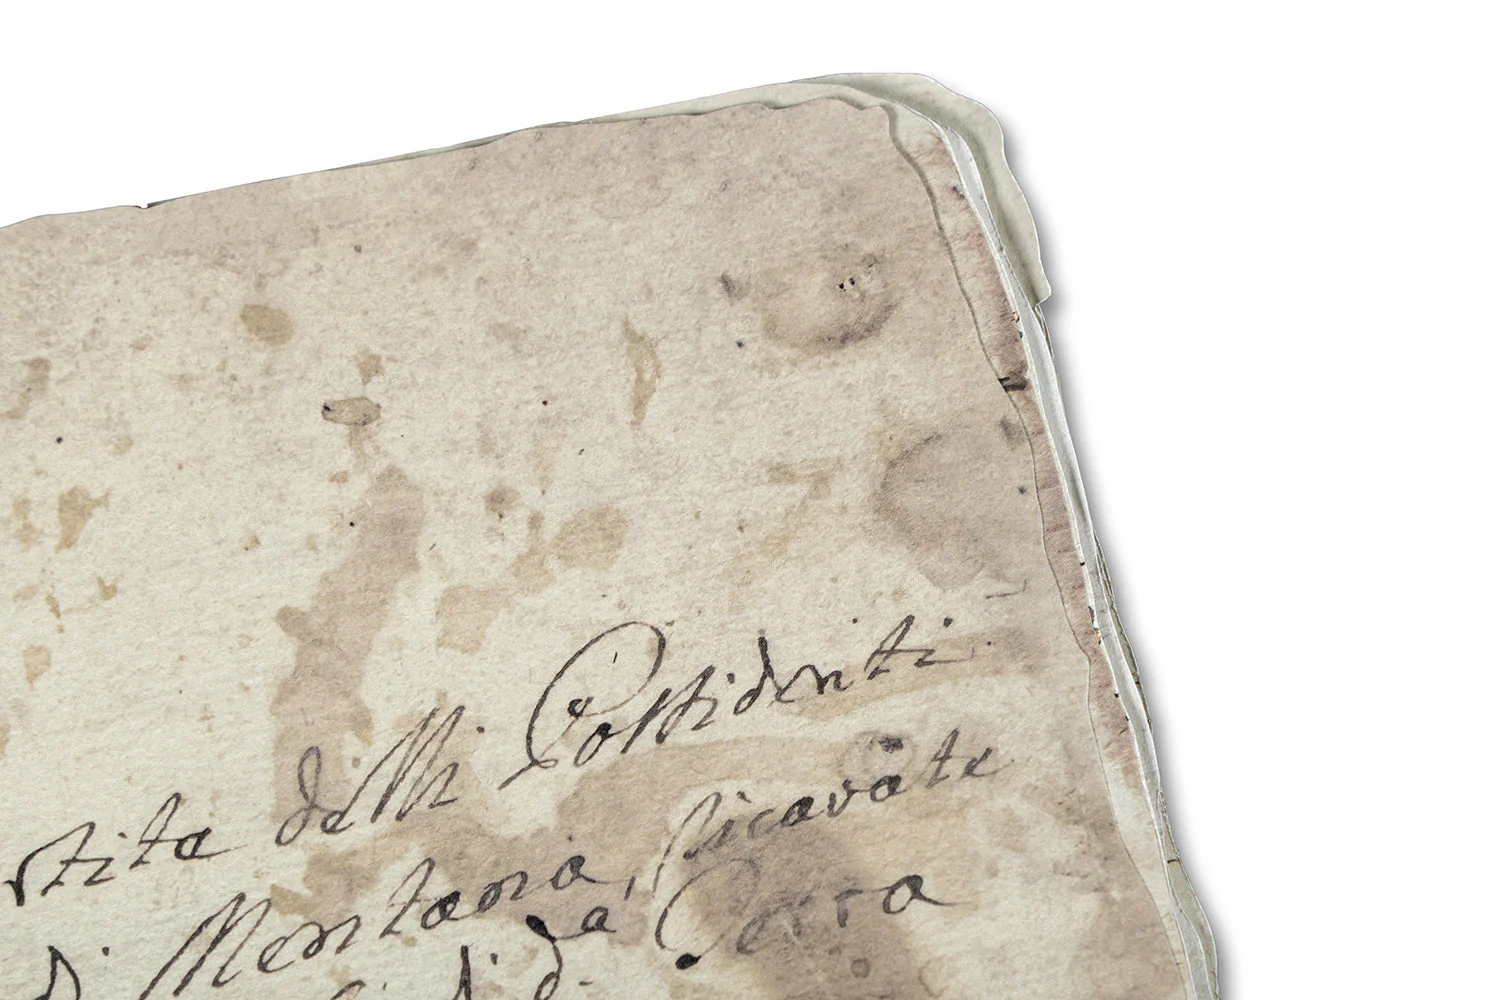 rtite delli Possidenti
di Mentana, ricavate
di da Terra